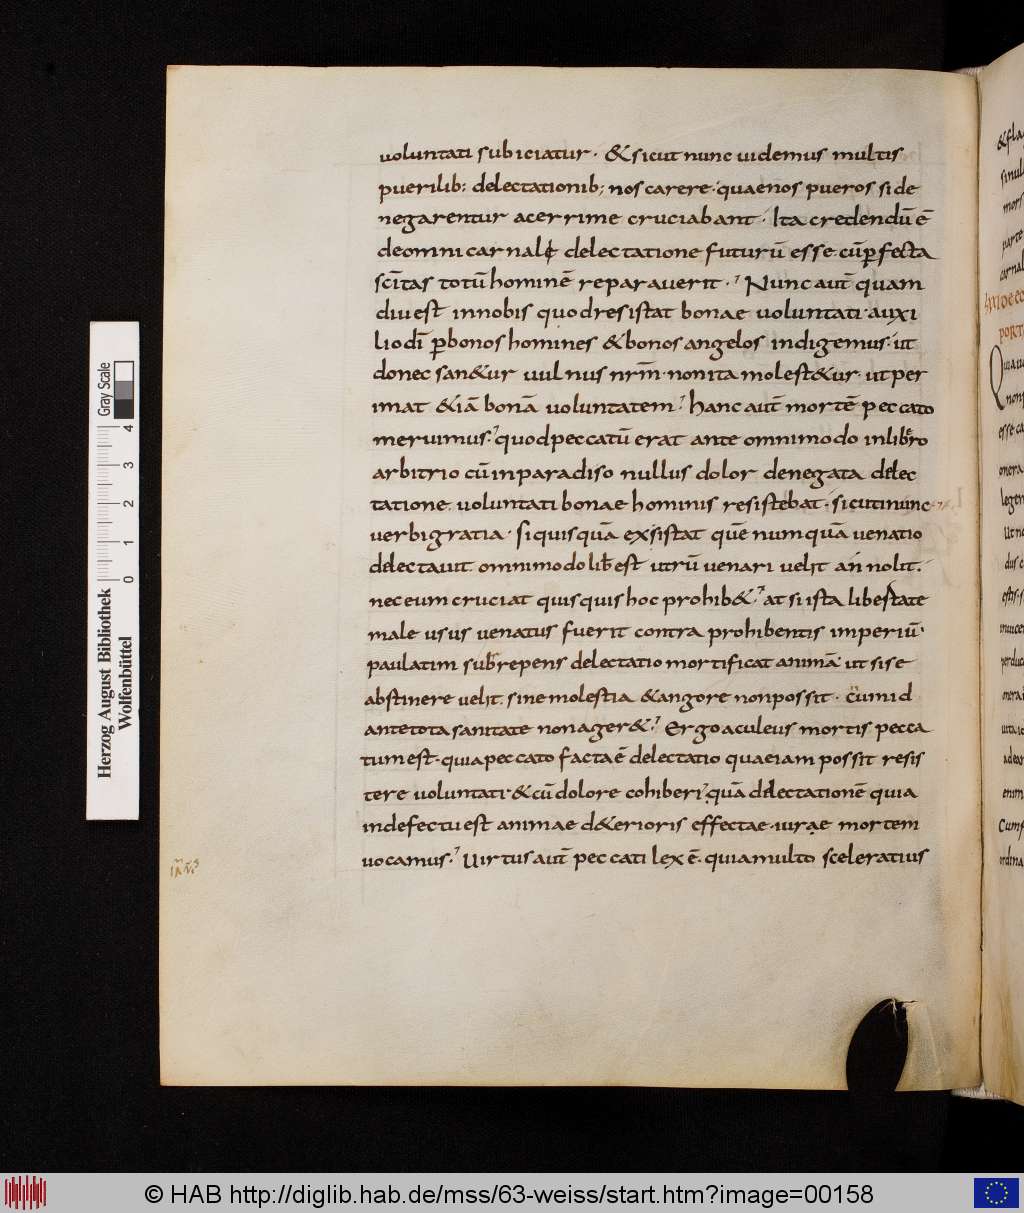 voluntati subiciatur· & sicut nunc uidemus multis
puerilib; delectationib; nos carere· quae nos pueros si de
negarentur acerrime cruciabant· Ita credendū ē
de omni carnali delectatione futurū esse· cū ꝑfecta
scītas totū hominē reparauerit· Nunc aut̄ quam
diu est in nobis quod resistat bonae voluntati· auxi
lio dī ꝑ bonos homines & bonos angelos indigemus· ut
donec san&ur uulnus nr̄m· non ita molest&ur· ut per
imat &iā bonā voluntatem· hanc aut̄ mortē peccato
meruimus· quod peccatū erat ante omnimodo in libero
arbitrio cū in paradiso nullus dolor denegata delec
tatione voluntati bonae hominis resistebat· sicuti nunc
verbi gratia· si quisquā exsistat quē numquā uenatio
delectauit omnimodo liber est utrū venari velit an nolit·
nec eum cruciat quisquis hoc prohib&· at si ista libertate
male usus uenatus fuerit contra prohibentis imperiū·
paulatim subrepens delectatio mortificat animā· ut si se
abstinere velit sine molestia &angore non possit· cū mid
ante tota sanitate non ager&· Ergo aculeus mortis pecca
tum est· quia peccato facta ē delectatio quae iam possit resis
tere voluntati· & cū dolore cohiberi· quā delectationē quia
in defectu est animae d&erioris effectae· iurae mortem
uocamus· Uirtus aut̄ peccati lex ē· quia multo sceleratius
Herzog August Bibliothek
Wolfenbüttel
0 1 2 3 4
Gray Scale
© HAB http://diglib.hab.de/mss/63-weiss/start.htm?image=00158